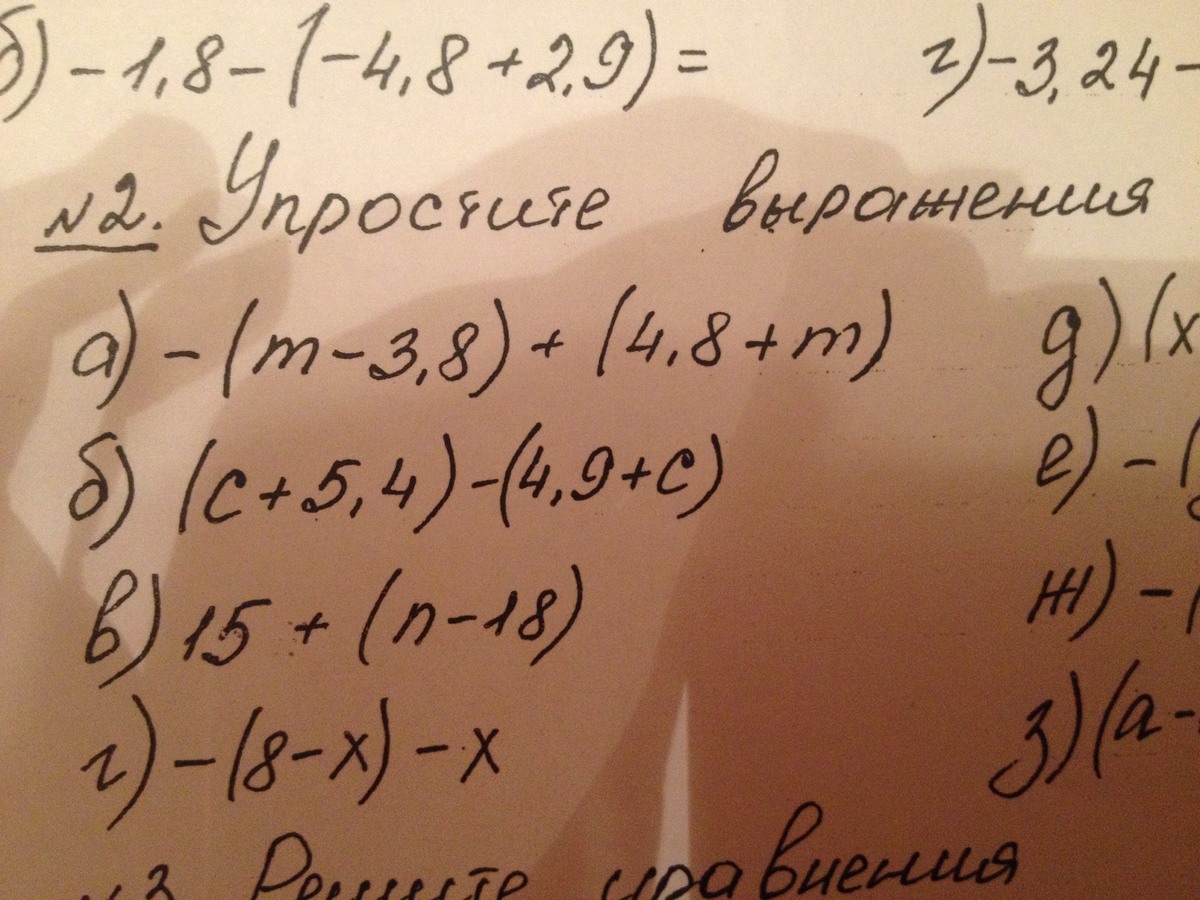 б) -1,8-(-4,8+2,9)= г)-3,24-
№2. Упростите выражения
а) -(m-3,8)+(4,8+m) д)(x
б) (c+5,4)-(4,9+c) е)-(
в) 15+(n-18) ж)-(
г) -(8-x)-x з)(a-
№3 Решите уравнения